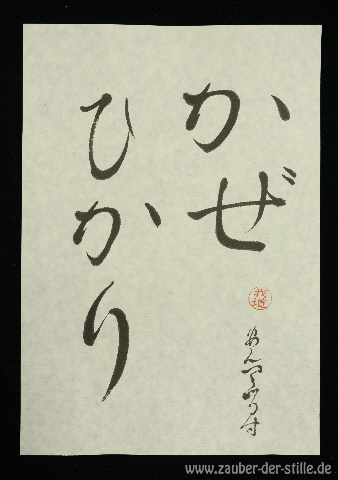 かぜ
ひかり
www.zauber-der-stille.de